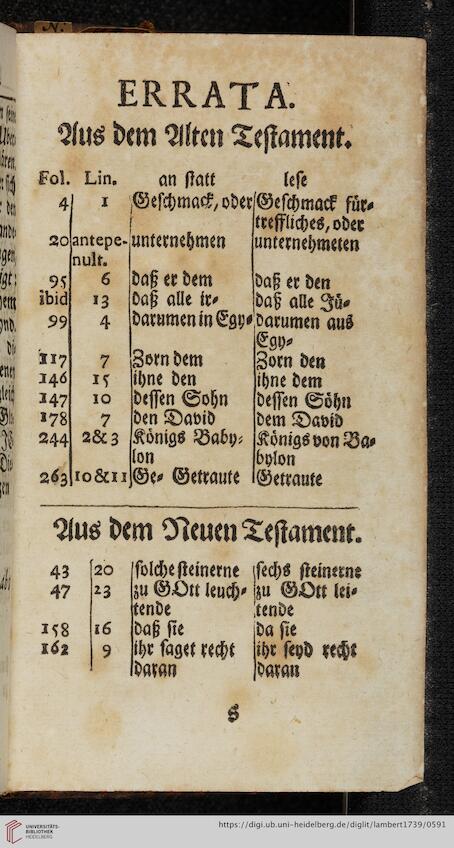 ERRATA.
Aus dem Alten Testament.
Fol. Lin. an statt lese
4 1 Geschmack, oder Geschmack für-
treffliches, oder
20 antepe- unternehmen unternehmeten
nult.
95 6 daß er dem daß er den
ibid 13 daß alle ir- daß alle Jü-
99 4 darumen in Egy- darumen aus
Egy-
117 7 Zorn dem Zorn den
146 15 ihne den ihne dem
147 10 dessen Sohn dessen Söhn
178 7 den David dem David
244 2&3 Königs Baby- Königs von Ba-
lon bylon
263 10&11 Ge- Getraute Getraute
Aus dem Neuen Testament.
43 20 solche steinerne sechs steinerne
47 23 zu GOtt leuch- zu GOtt lei-
tende tende
158 16 daß sie da sie
162 9 ihr saget recht ihr seyd recht
daran daran
UNIVERSITÄTS-
BIBLIOTHEK
HEIDELBERG
https://digi.ub.uni-heidelberg.de/diglit/lambert1739/0591